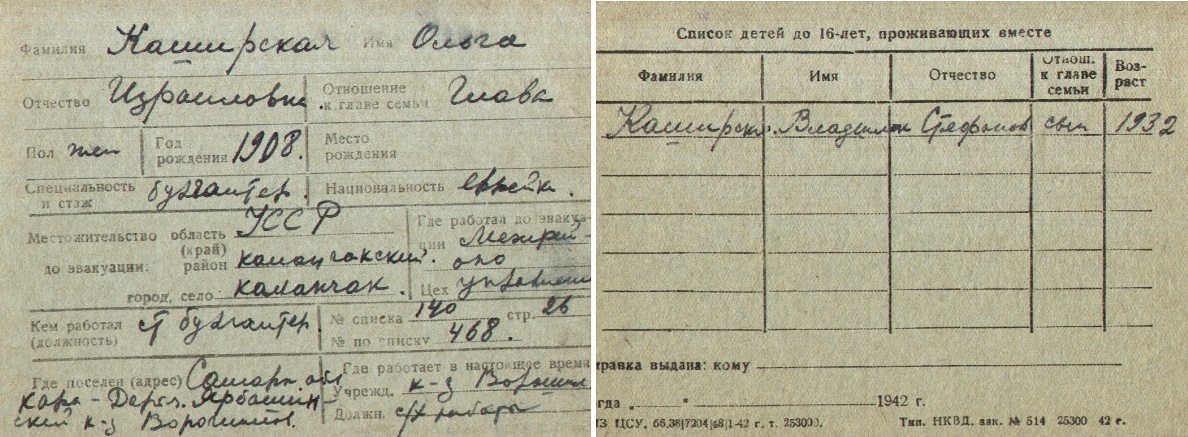 Фамилия Каширская Имя Ольга
Отчество Израиловна Отношение к главе семьи Глава
Пол жен Год рождения 1908. Место рождения
Специальность и стаж бухгалтер Национальность еврейка.
Местожительство до эвакуации: область (край) УССР
район каланчакский.
город, село: каланчак.
Где работал до эвакуации
Цех
Кем работал (должность) ст бухгалтер № списка 140 стр. 26
№ по списку 468.
Где поселен (адрес) Самарк обл
Кара-Дарь.
к-з Ворошилов.
Где работает в настоящее время
Учрежд. к-з Ворошил
Должн. с/х работы
Список детей до 16-лет, проживающих вместе
Фамилия Имя Отчество Отнош. к главе семьи Возраст
Каширск. Владимир Стефанов сын 1932
правка выдана: кому
гда „ " 1942 г.
ИЗ ЦСУ. 66.38|7204|48|1-42 г. т. 253000. Тип. НКВД. зак. № 514 25300 42 г.